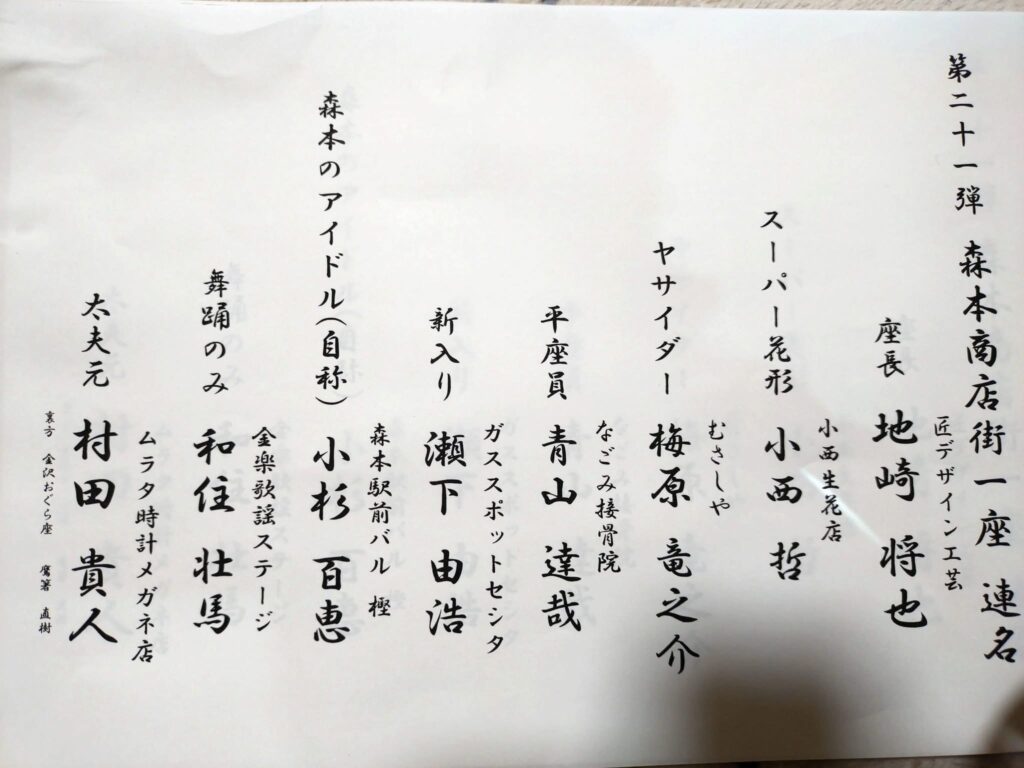 第二十一弾 森本商店街一座 連名
匠デザイン工芸
座長 地崎 将也
小西生花店
スーパー花形 小西 哲
むさしや
ヤサイダー 梅原 竜之介
なごみ接骨院
平座員 青山 達哉
ガススポットセシタ
新入り 瀬下 由浩
森本駅前バル 樫
森本のアイドル(自称) 小杉 百恵
金楽歌謡ステージ
舞踊のみ 和住 壮馬
ムラタ時計メガネ店
太夫元 村田 貴人
裏方 金沢おぐら座 鷹箸 直樹